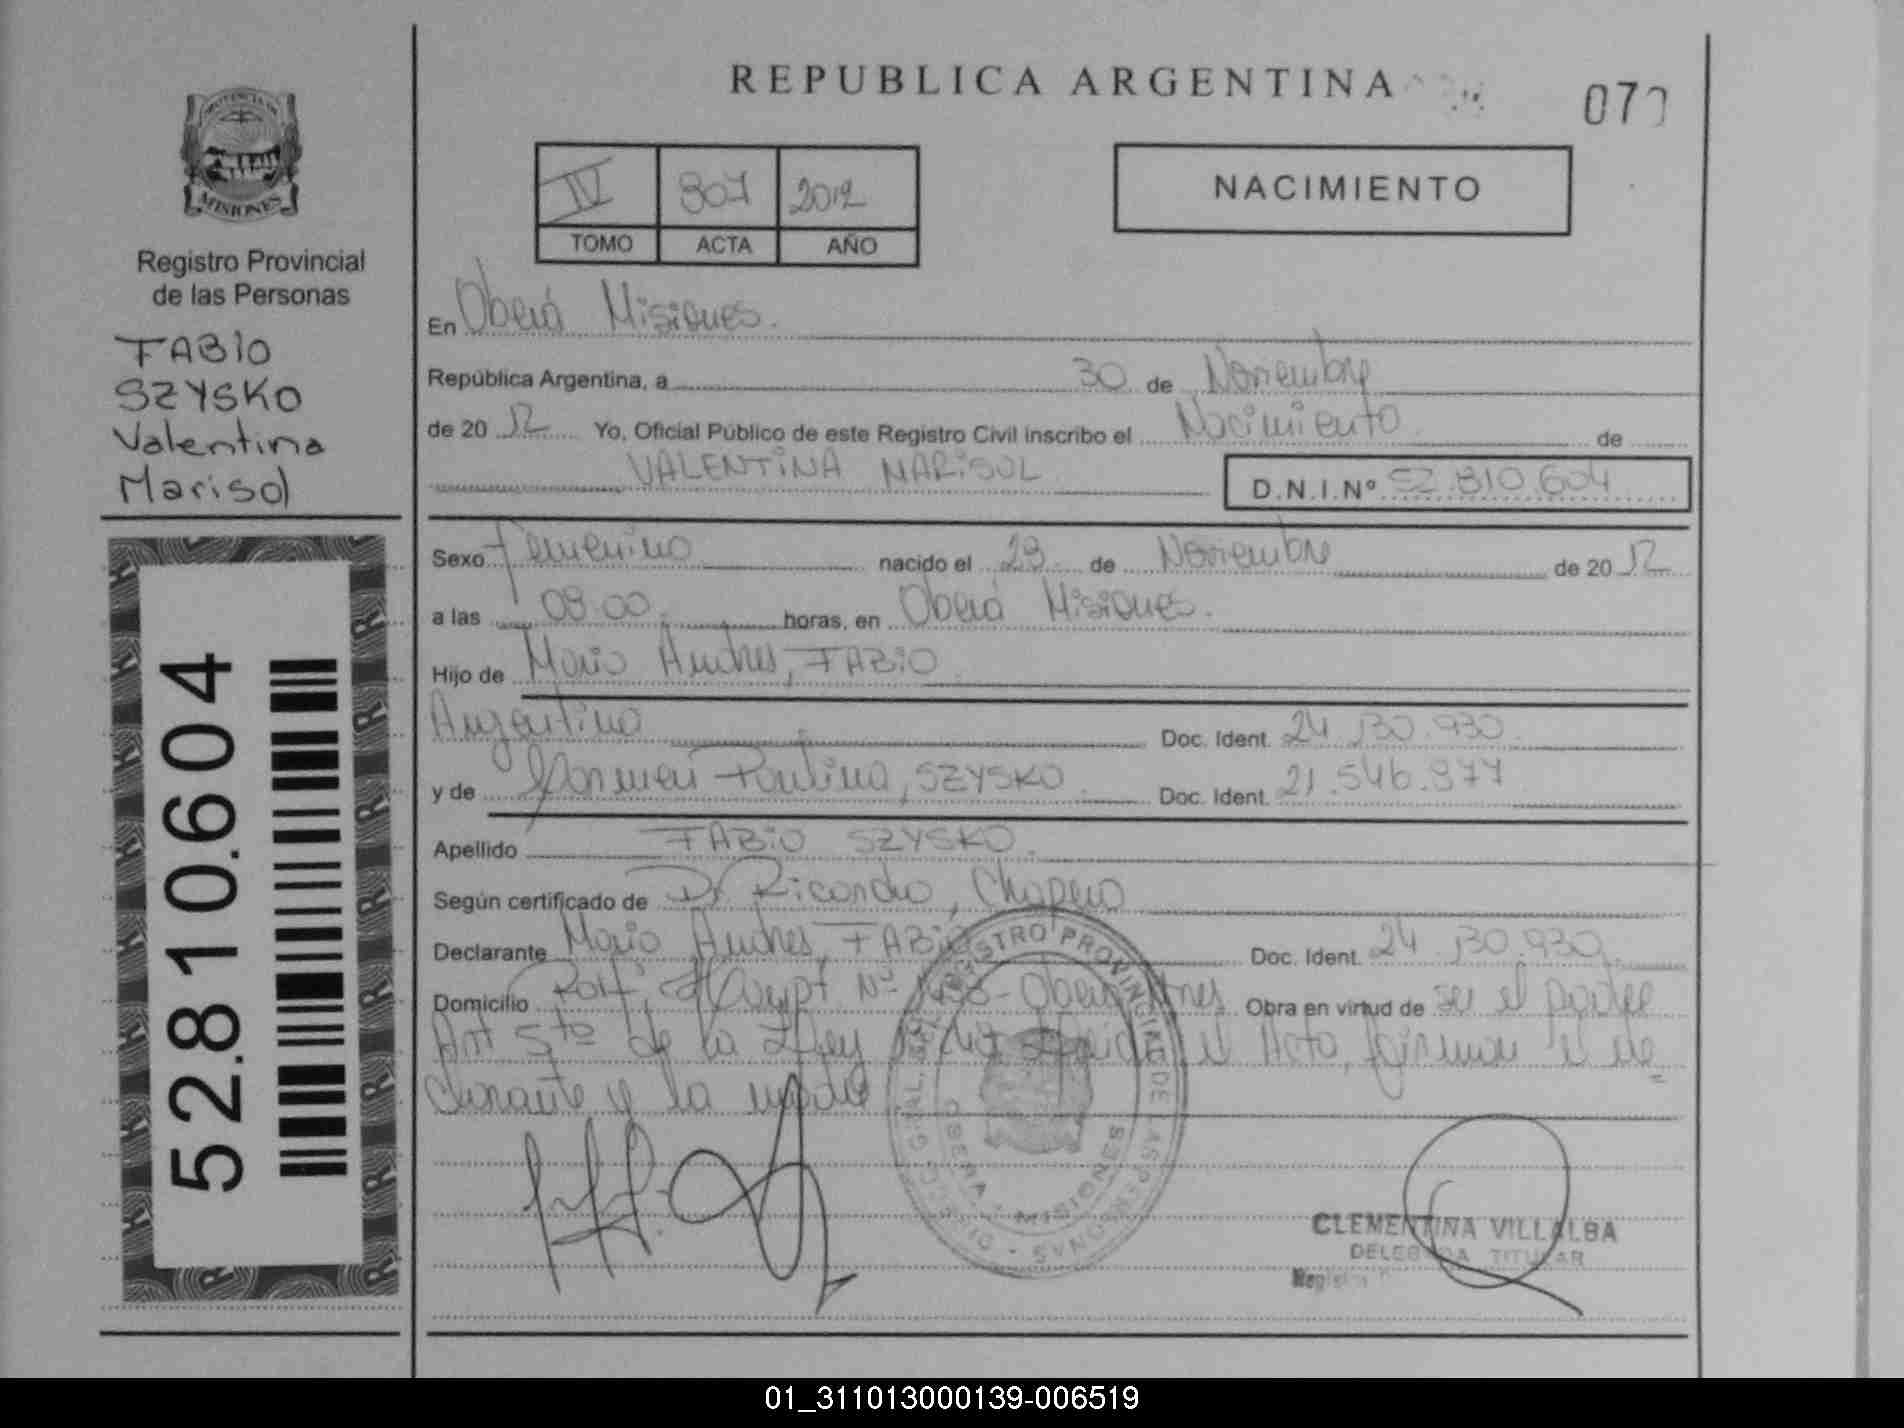 REPUBLICA ARGENTINA
PROVINCIA DE
MISIONES
Registro Provincial
de las Personas
FABIO
SZYSKO
Valentina
Marisol
52.810.604
IV 807 2012
TOMO ACTA AÑO
NACIMIENTO
En Oberá Misiones.
República Argentina, a 30 de Noviembre
de 20 12 Yo, Oficial Público de este Registro Civil inscribo el Nacimiento de
VALENTINA MARISOL D.N.I.Nº 52.810.604
Sexo femenino nacido el 29 de Noviembre de 20 12
a las horas, en Oberá Misiones.
Hijo de Mario Andres, FABIO
Argentino Doc. Ident. 24.130.930
y de Carmen Paulina, SZYSKO Doc. Ident. 21.546.977
Apellido FABIO SZYSKO.
Según certificado de Dr Ricardo,
Declarante Mario Andres, FABIO Doc. Ident. 24.130.930
Domicilio Nº Oberá Mnes. Obra en virtud de ser el padre
Art 5to de la Ley el Acta, firman el de=
clarante y la madre
REGISTRO PROVINCIAL DE LAS PERSONAS
OBERA - MISIONES
CLEMENTINA VILLALBA
DELEGADA TITULAR
01_311013000139-006519